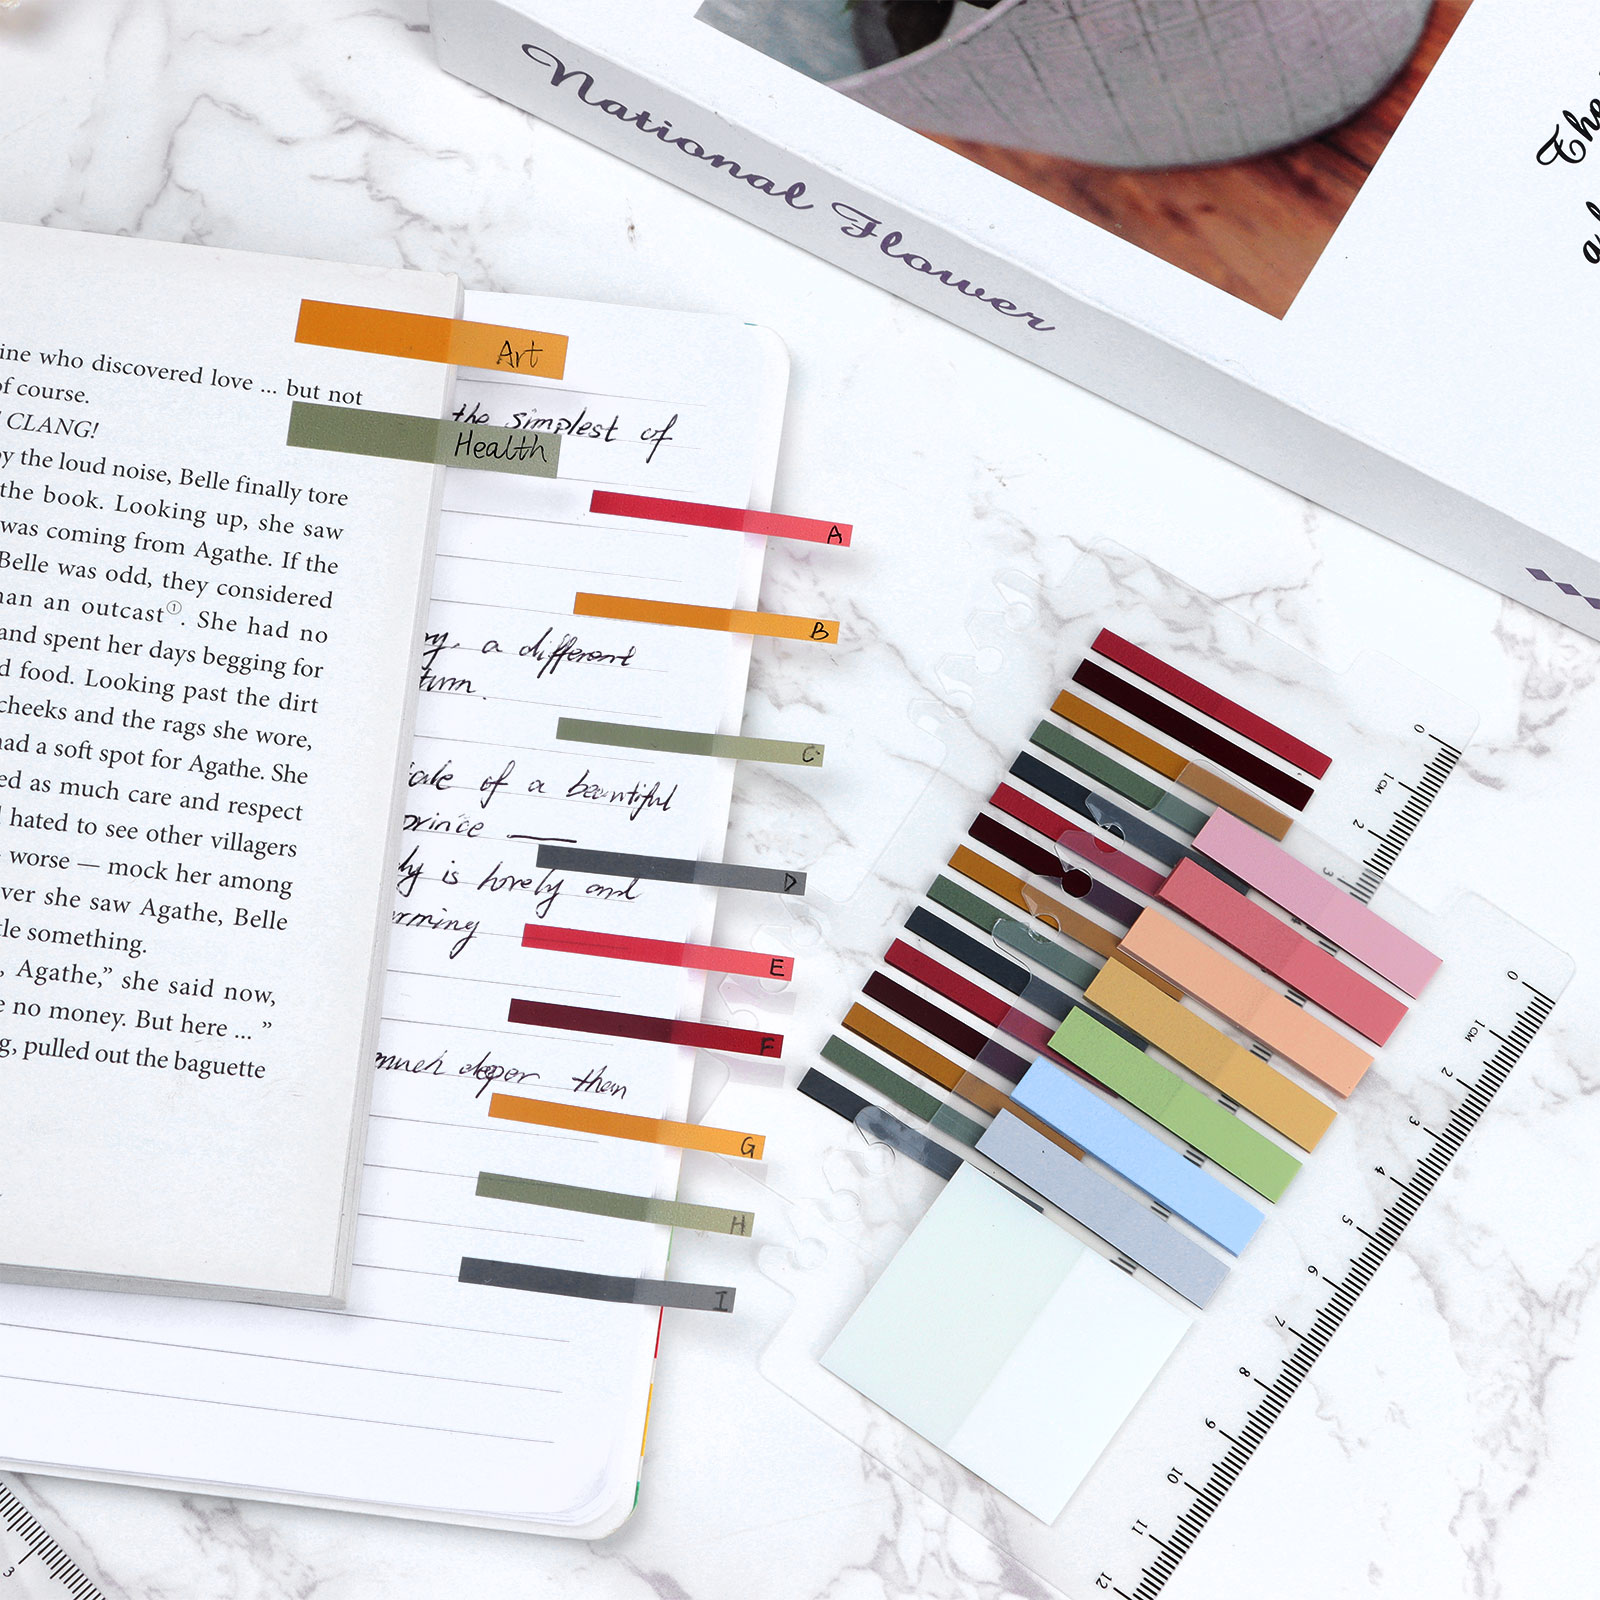 National Flower
The
ine who discovered love ... but not
of course.
CLANG!
by the loud noise, Belle finally tore
the book. Looking up, she saw
was coming from Agathe. If the
Belle was odd, they considered
han an outcast①. She had no
and spent her days begging for
d food. Looking past the dirt
cheeks and the rags she wore,
had a soft spot for Agathe. She
ed as much care and respect
l hated to see other villagers
worse — mock her among
ver she saw Agathe, Belle
tle something.
, Agathe,” she said now,
e no money. But here ... ”
g, pulled out the baguette
Art
the simplest of
Health
A
B
ry, a different
turn.
C
tale of a beautiful
prince
D
ly is lovely and
rming
E
F
much deeper than
G
H
I
0 1CM 2 3
0 1CM 2 3 4 5 6 7 8 9 10 11 12
3